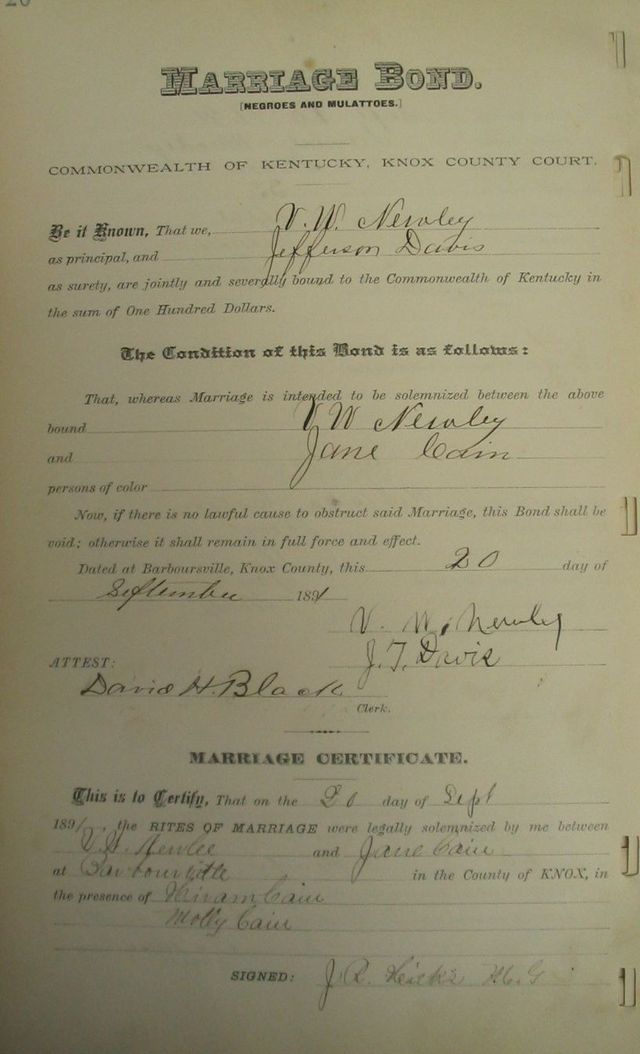 20
MARRIAGE BOND.
[NEGROES AND MULATTOES.]
COMMONWEALTH OF KENTUCKY, KNOX COUNTY COURT.
Be it Known, That we, V. W. Newley
as principal, and Jefferson Davis
as surety, are jointly and severally bound to the Commonwealth of Kentucky in
the sum of One Hundred Dollars.
The Condition of this Bond is as follows:
That, whereas Marriage is intended to be solemnized between the above
bound V W Newley
and Jane Cain
persons of color
Now, if there is no lawful cause to obstruct said Marriage, this Bond shall be
void; otherwise it shall remain in full force and effect.
Dated at Barboursville, Knox County, this 20 day of
September 1891
V. W. Newley
J. T. Davis
ATTEST:
David H. Black
Clerk.
MARRIAGE CERTIFICATE.
This is to Certify, That on the 20 day of Sept
1891, the RITES OF MARRIAGE were legally solemnized by me between
Newlee and Jane Cain
at Barbourville in the County of KNOX, in
the presence of Hiram Cain
Molly Cain
SIGNED: J. R.